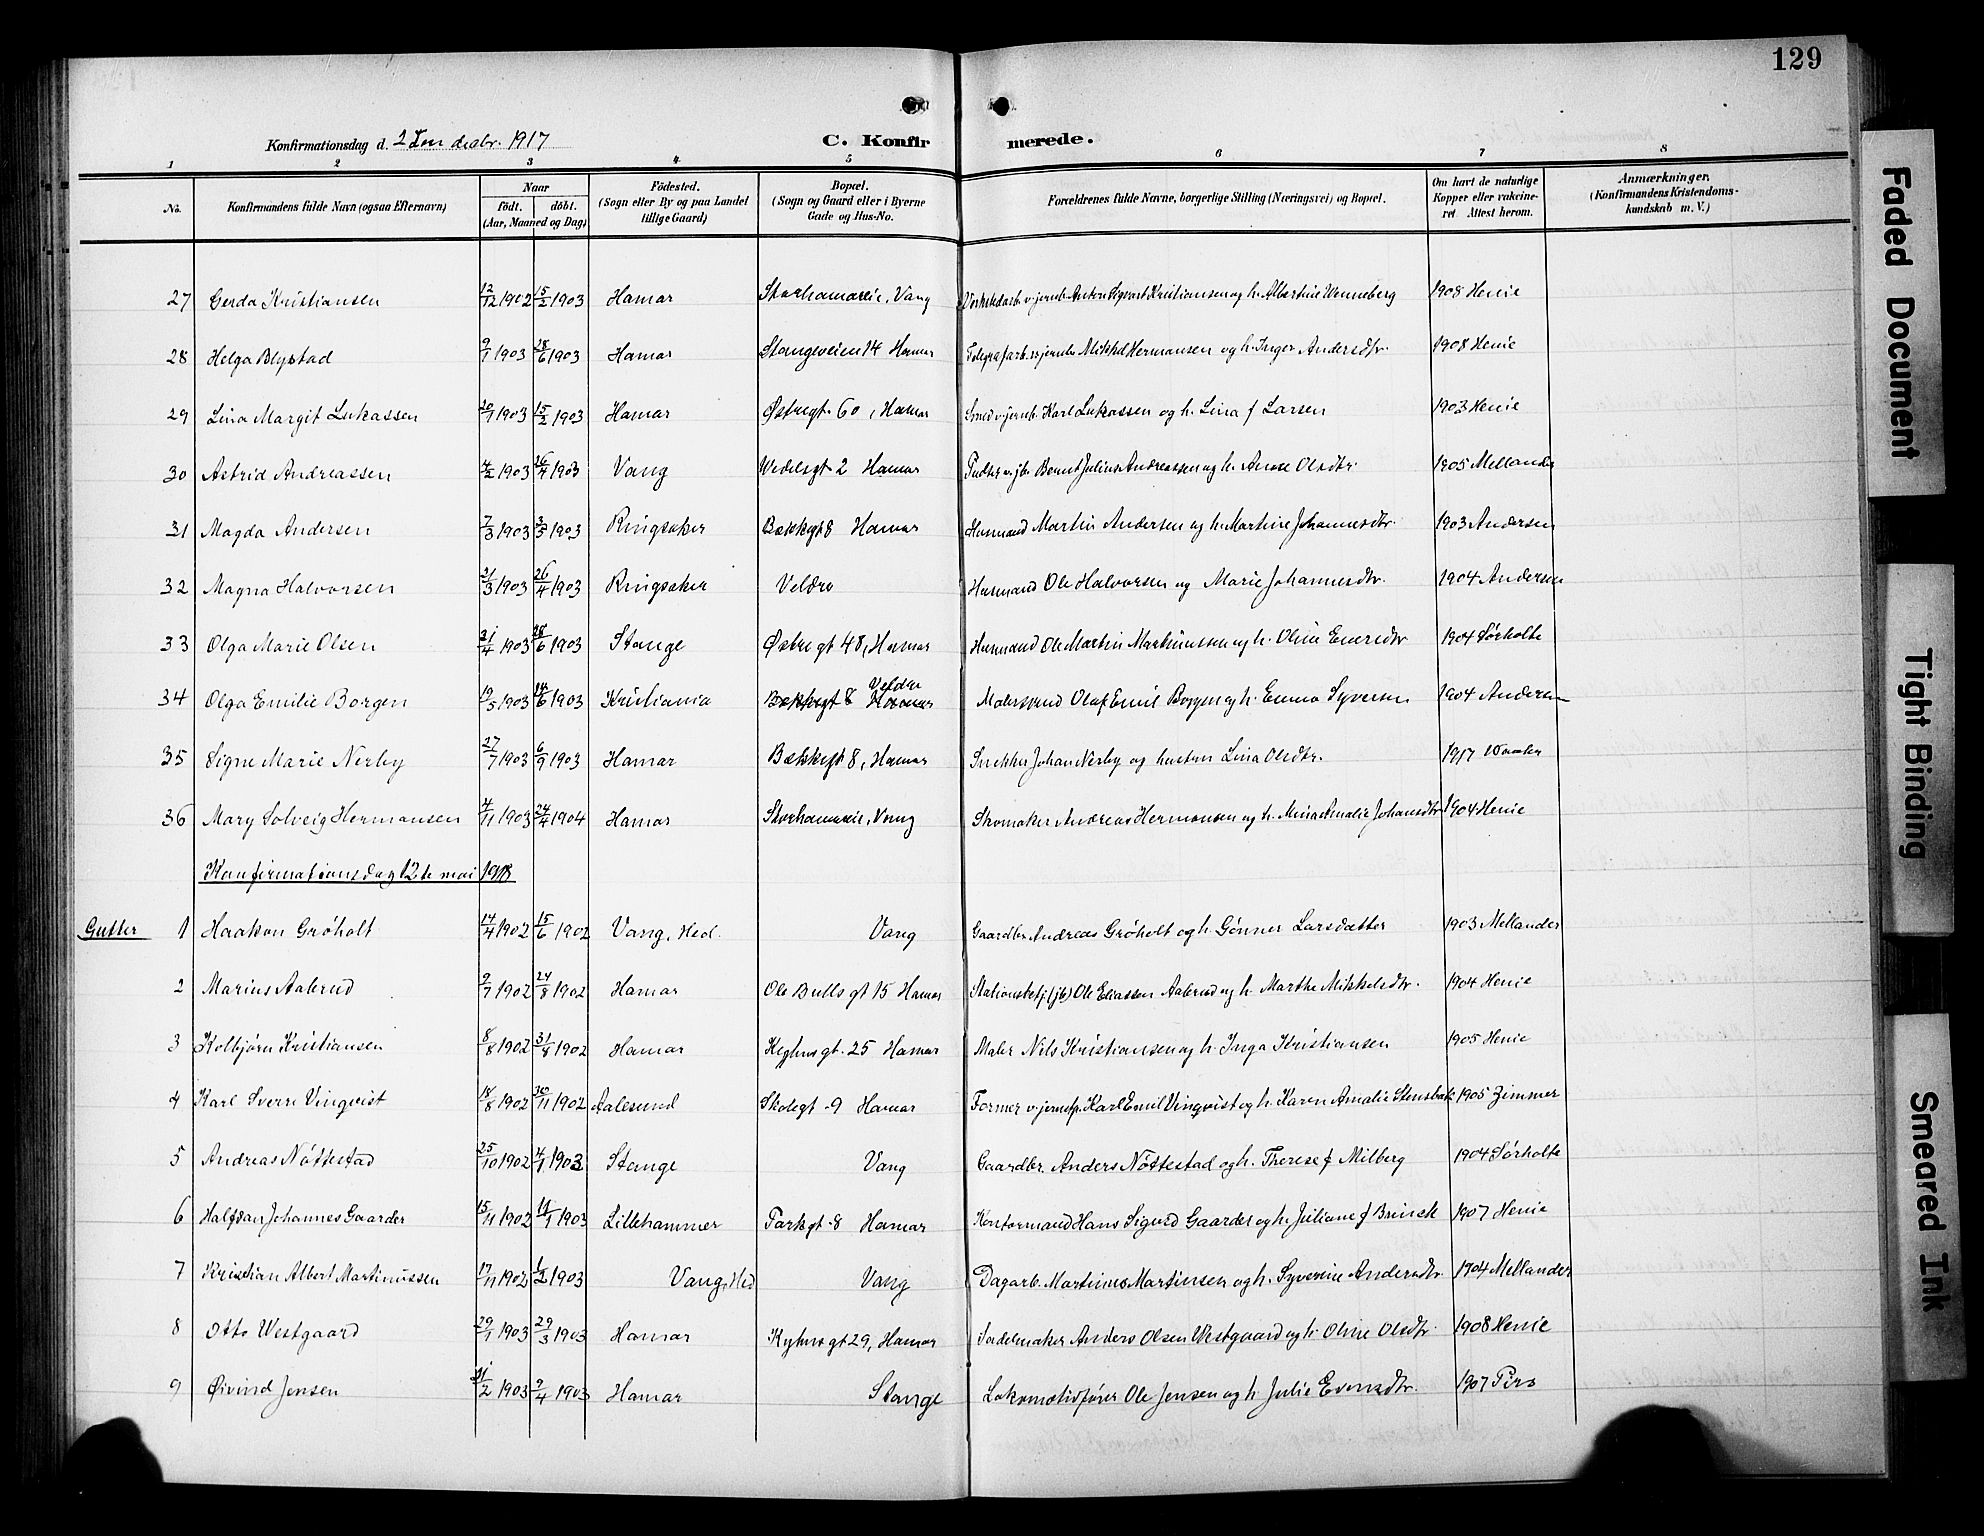 129
Konfirmationsdag d. 2den decbr. 1917 C. Konfirmerede.
1 2 3 4 5 6 7 8
No. Konfirmandens fulde Navn (ogsaa Efternavn) Naar født. døbt. (Aar, Maaned og Dag) Fødested. (Sogn eller By og paa Landet tillige Gaard) Bopæl. (Sogn og Gaard eller i Byerne Gade og Hus-No. Forældrenes fulde Navne, borgerlige Stilling (Næringsvei) og Bopæl. Om havt de naturlige Kopper eller vakcineret. Attest herom. Anmærkninger. (Konfirmandens Kristendomskundskab m. V.)
27 Gerda Kristiansen 12/12 1902 15/2 1903 Hamar Storhamareie, Vang v. jernb. Anton Sigvart Kristiansen og h. Albertine Wenneberg 1908 Henie
28 Helga Blystad 9/1 1903 28/6 1903 Hamar Stangeveien 14 Hamar Telegrafarb. v. jernb. Mikkel Hermansen og h. Inger Andersdtr. 1908 Henie
29 Lina Margit Lukassen 20/1 1903 15/2 1903 Hamar Østregt. 60, Hamar Smed v. jernb. Karl Lukassen og h. Lina f Larsen 1903 Henie
30 Astrid Andreassen 4/2 1903 26/4 1903 Vang Wedelsgt 2 Hamar Pudser v. jb. Bernt Julius Andreassen og h. Anne Olsdtr. 1905 Mellander
31 Magda Andersen 7/3 1903 1903 Ringsaker Bækkegt 8 Hamar Husmand Martin Andersen og h. Martine Johannesdtr. 1903 Andersen
32 Magna Halvorsen 21/3 1903 26/4 1903 Ringsaker Veldre Husmand Ole Halvorsen og Marie Johannesdtr. 1904 Andersen
33 Olga Marie Olsen 21/4 1903 28/6 1903 Stange Østregt 48, Hamar Husmand Ole Martin Martinussen og h. Oline Evensdtr 1904 Sørholte
34 Olga Emilie Borgen 19/5 1903 14/6 1903 Kristiania Bækkegt 8 Hamar Veldre Malersvend Olaf Emil Borgen og h. Emma Syversen 1904 Andersen
35 Signe Marie Nerby 27/7 1903 6/9 1903 Hamar Bækkegt 8, Hamar Snekker Johan Nerby og hustru Lina Olsdtr. 1917 Waaler
36 Mary Solveig Hermansen 4/11 1903 24/4 1904 Hamar Storhamareie, Vang Skomaker Andreas Hermansen og h. Mina Amalie Johansdtr 1904 Henie
Konfirmationsdag 12te mai 1918
Gutter 1 Haakon Grøholt 14/4 1902 15/6 1902 Vang, Hed. Vang Gaardbr. Andreas Grøholt og h. Gønner Larsdatter 1903 Mellander
2 Marius Aalerud 9/7 1902 24/8 1902 Hamar Ole Bullsgt 15 Hamar Stationsbetj. (jb) Ole Eliassen Aalerud og h. Marthe Mikkelsdtr. 1904 Henie
3 Kolbjørn Kristiansen 8/8 1902 31/8 1902 Hamar Kyhnsgt. 25 Hamar Maler Nils Kristiansen og h. Inga Kristiansen 1905 Henie
4 Karl Sverre Vinqvist 18/8 1902 30/11 1902 Aalesund Skolegt. 9 Hamar Former v. jernst. Karl Emil Vinqvist og h. Karen Amalie Stensbæk 1905 Zimmer
5 Andreas Nøttestad 25/10 1902 4/1 1903 Stange Vang Gaardbr. Anders Nøttestad og h. Therese f Milberg 1904 Sørholte
6 Halfdan Johannes Gaarder 15/11 1902 11/1 1903 Lillehammer Parkgt. 8 Hamar Kontormand Hans Sigurd Gaarder og h. Juliane f Brinck 1907 Henie
7 Kristian Albert Martinussen 17/11 1902 1/2 1903 Vang, Hed Vang Dagarb. Martinus Martinsen og h. Syverine Andersdtr. 1904 Mellander
8 Otto Westgaard 29/1 1903 29/3 1903 Hamar Kyhnsgt 29, Hamar Sadelmaker Anders Olsen Westgaard og h. Oline Olsdtr. 1908 Henie
9 Øivind Jensen 21/2 1903 2/4 1903 Hamar Stange Lokomotivfører Ole Jensen og h Julie Evensdtr. 1907 Piro
Faded Document
Tight Binding
Smeared Ink